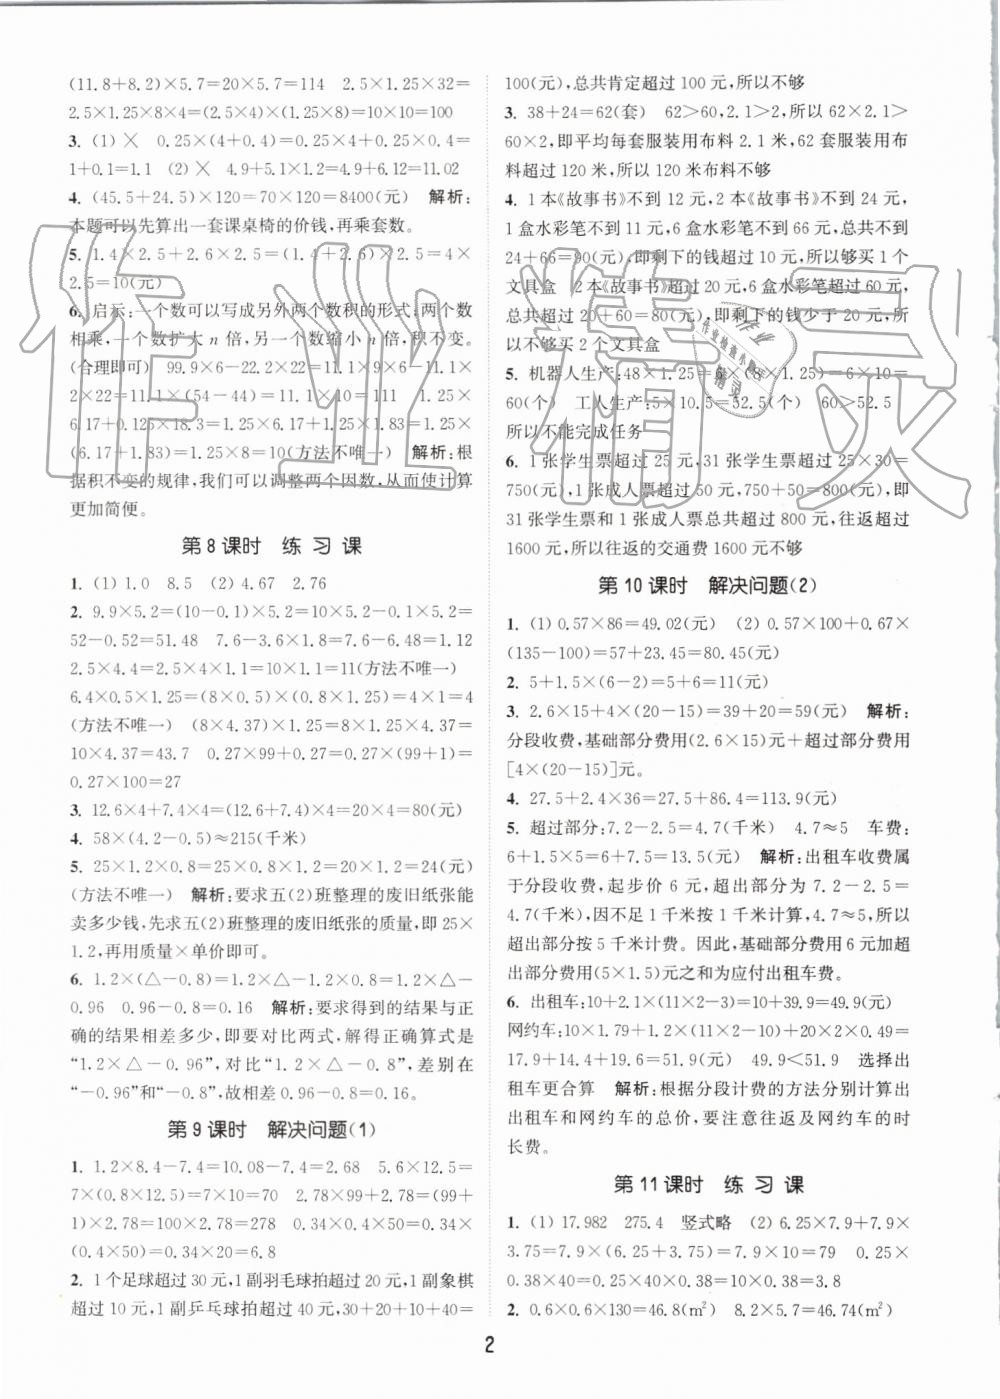 (11.8+8.2)×5.7=20×5.7=114　2.5×1.25×32=
2.5×1.25×8×4=(2.5×4)×(1.25×8)=10×10=100
3. (1) ╳　0.25×(4+0.4)=0.25×4+0.25×0.4=
1+0.1=1.1　(2) ╳　4.9+6.12=6.12+4.9=11.02
4. (45.5+24.5)×120=70×120=8400(元)　解析:
本题可以先算出一套课桌椅的价钱,再乘套数。
5. 1.4×2.5+2.6×2.5=(1.4+2.6)×2.5=4×
2.5=10(元)
6. 启示:一个数可以写成另外两个数积的形式;两个数
相乘,一个数扩大 n 倍,另一个数缩小 n 倍,积不变。
(合理即可)　99.9×6-22.2×22=11.1×9×6-11.1×
2×22=11.1×(54-44)=11.1×10=111　1.25×
6.17+0.125×18.3=1.25×6.17+1.25×1.83=1.25×
(6.17+1.83)=1.25×8=10(方法不唯一)　解析:根
据积不变的规律,我们可以调整两个因数,从而使计算
更加简便。
第 8 课时　练 习 课
1. (1) 1.0　8.5　(2) 4.67　2.76
2. 9.9×5.2=(10-0.1)×5.2=10×5.2-0.1×5.2=
52-0.52=51.48　7.6-3.6×1.8=7.6-6.48=1.12
2.5×4.4=2.5×4×1.1=10×1.1=11(方法不唯一)
6.4×0.5×1.25=(8×0.5)×(0.8×1.25)=4×1=4
(方法不唯一)　(8×4.37)×1.25=8×1.25×4.37=
10×4.37=43.7　0.27×99+0.27=0.27×(99+1)=
0.27×100=27
3. 12.6×4+7.4×4=(12.6+7.4)×4=20×4=80(元)
4. 58×(4.2-0.5)≈215(千米)
5. 25×1.2×0.8=25×0.8×1.2=20×1.2=24(元)
(方法不唯一)　解析:要求五(2)班整理的废旧纸张能
卖多少钱,先求五(2)班整理的废旧纸张的质量,即 25×
1.2,再用质量×单价即可。
6. 1.2×(△-0.8)=1.2×△-1.2×0.8=1.2×△-
0.96　0.96-0.8=0.16　解析:要求得到的结果与正
确的结果相差多少,即要对比两式,解得正确算式是
“1.2×△-0.96”,对比“1.2×△-0.8”,差别在
“-0.96”和“-0.8”,故相差 0.96-0.8=0.16。
第 9 课时　解决问题(1)
1. 1.2×8.4-7.4=10.08-7.4=2.68　5.6×12.5=
7×(0.8×12.5)=7×10=70　2.78×99+2.78=(99+
1)×2.78=100×2.78=278　0.34×0.4×50=0.34×
(0.4×50)=0.34×20=6.8
2. 1 个足球超过 30 元,1 副羽毛球拍超过 20 元,1 副象棋
超过 10 元,1 副乒乓球拍超过 40 元,30+20+10+40=
100(元),总共肯定超过 100 元,所以不够
3. 38+24=62(套)　62>60,2.1>2,所以 62×2.1>
60×2,即平均每套服装用布料 2.1 米,62 套服装用布
料超过 120 米,所以 120 米布料不够
4. 1 本《故事书》不到 12 元,2 本《故事书》不到 24 元,
1 盒水彩笔不到 11 元,6 盒水彩笔不到 66 元,总共不到
24+66=90(元),即剩下的钱超过 10 元,所以够买 1 个
文具盒　2 本《故事书》超过 20 元,6 盒水彩笔超过 60 元,
总共超过 20+60=80(元),即剩下的钱少于 20 元,所
以不够买 2 个文具盒
5. 机器人生产:48×1.25=6×(8×1.25)=6×10=
60(个)　工人生产:5×10.5=52.5(个)　60>52.5
所以不能完成任务
6. 1 张学生票超过 25 元,31 张学生票超过 25×30=
750(元),1 张成人票超过 50 元,750+50=800(元),即
31 张学生票和 1 张成人票总共超过 800 元,往返超过
1600 元,所以往返的交通费 1600 元不够
第 10 课时　解决问题(2)
1. (1) 0.57×86=49.02(元)　(2) 0.57×100+0.67×
(135-100)=57+23.45=80.45(元)
2. 5+1.5×(6-2)=5+6=11(元)
3. 2.6×15+4×(20-15)=39+20=59(元)　解析:
分段收费,基础部分费用(2.6×15)元+超过部分费用
[4×(20-15)]元。
4. 27.5+2.4×36=27.5+86.4=113.9(元)
5. 超过部分:7.2-2.5=4.7(千米)　4.7≈5　车费:
6+1.5×5=6+7.5=13.5(元)　解析:出租车收费属
于分段收费,起步价 6 元,超出部分有 7.2-2.5=
4.7(千米),因不足 1 千米按 1 千米计算,4.7≈5,所以
超出部分按 5 千米计费。因此,基础部分费用 6 元加超
出部分费用(5×1.5)元之和为应付出租车费。
6. 出租车:10+2.1×(11×2-3)=10+39.9=49.9(元)
网约车:10×1.79+1.2×(11×2-10)+20×0.8=
17.9+14.4+19.6=51.9(元)　49.9<51.9　选择出
租车更合算　解析:根据分段计费的方法分别计算出
出租车和网约车的总价,要注意往返及网约车的时
长费。
第 11 课时　练 习 课
1. (1) 17.982　275.4　竖式略　(2) 6.25×7.9+7.9×
3.75=7.9×(6.25+3.75)=7.9×10=79　0.25×
0.38×40=0.25×40×0.38=10×0.38=3.8
2. 0.6×0.6×130=46.8(m²)　8.2×5.7=46.74(m²)
2
作业精灵
作业检查小助手
作业
精灵